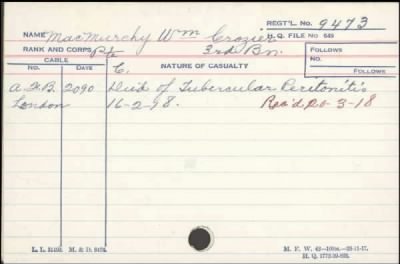 REGT'L. No. 9473
NAME MacMurchy Wm Crozier H. Q. FILE No 649
RANK AND CORPS Pte 3rd Bn. FOLLOWS
No.
CABLE C. NATURE OF CASUALTY FOLLOWS
No. DATE
2090 Died of Tubercular Peritonitis
London 16-2-18. Rec'd 3-18
M. F. W. 42
H. Q. 1772-39-835.